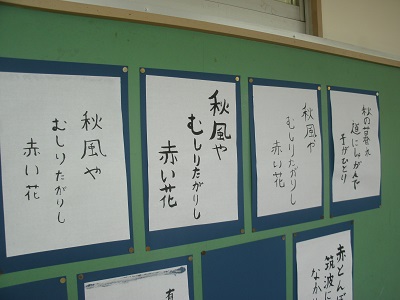 秋風や
むしりたがりし
赤い花
秋風や
むしりたがりし
赤い花
秋風や
むしりたがりし
赤い花
秋の暮れ
道にしゃがんで
子がひとり
有
赤とん
筑波に
なか